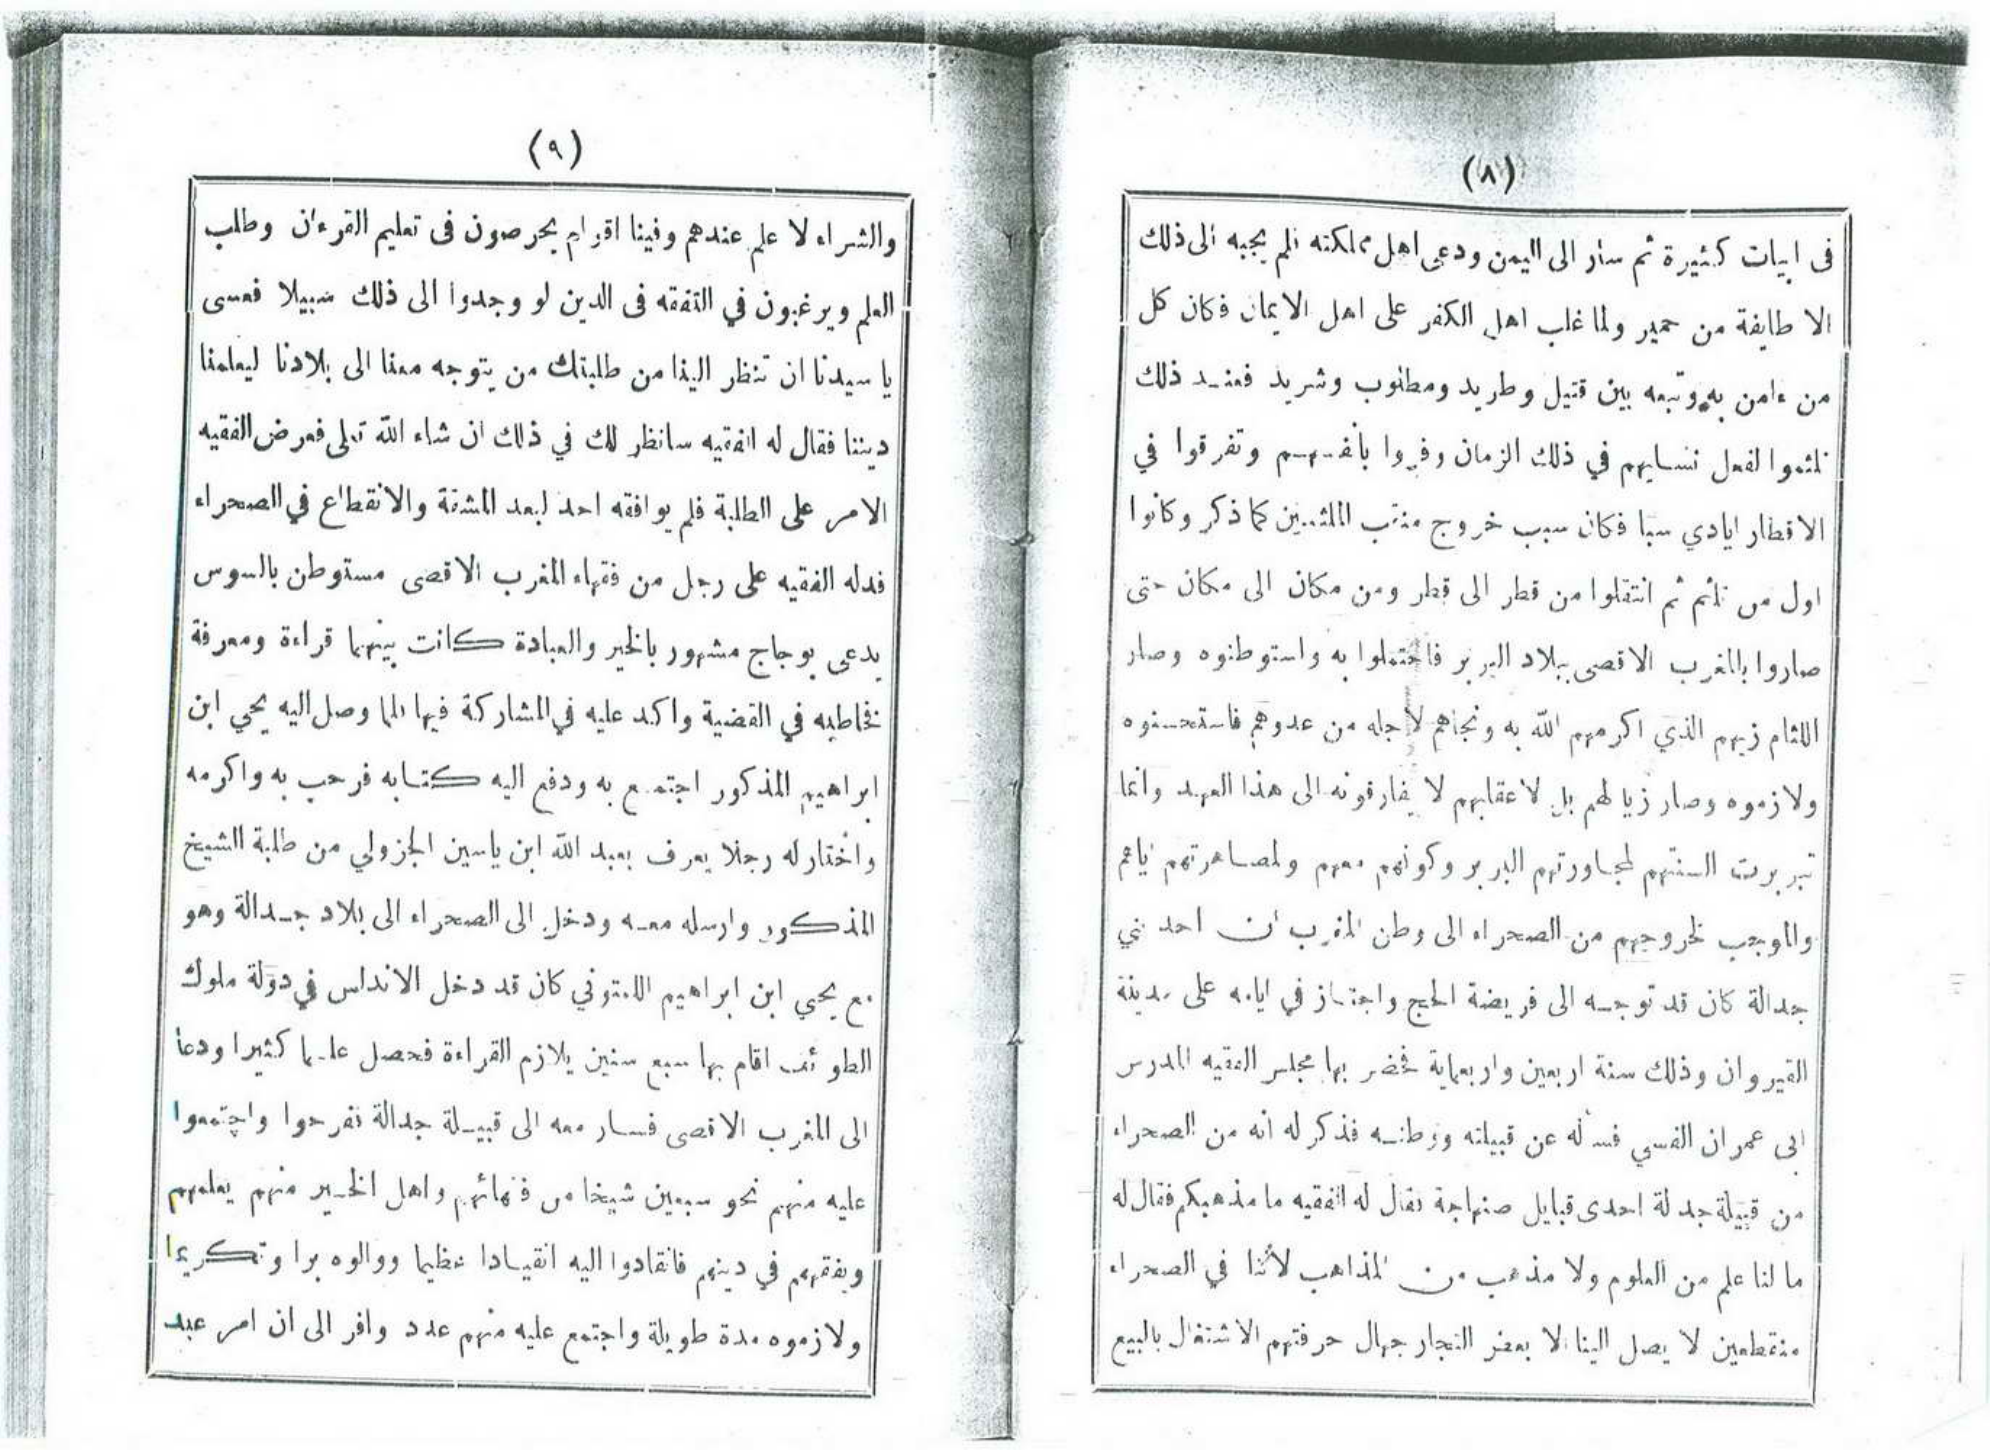 (٨)
فى ابيات كثيرة ثم سار الى اليمن ودعى اهل مملكته فلم يجبه الى ذلك
الا طايفة من حمير ولما غلب اهل الكفر على اهل الايمان فكان كل
من ءامن به وتبعه بين قتيل وطريد ومطلوب وشريد فعند ذلك
تلثموا لفعل نسايهم في ذلك الزمان وفروا بأنفسهم وتفرقوا في
الاقطار ايادي سبا فكان سبب خروج الملثمين كما ذكر وكانوا
اول من تلثم ثم انتقلوا من قطر الى قطر ومن مكان الى مكان حتى
صاروا بالمغرب الاقصى ببلاد البربر فاحتلوا به واستوطنوه وصار
اللثام زيهم الذي اكرمهم الله به ونجاهم لاجله من عدوهم فاستحسنوه
ولازموه وصار زيا لهم بل لاعقابهم لا يفارقونه الى هذا العهد وانما
تبربرت السنتهم لمجاورتهم البربر وكونهم معهم ولمصاهرتهم اياهم
والموجب لخروجهم من الصحراء الى وطن المغرب ان احد بني
جدالة كان قد توجه الى فريضة الحج واجتاز في ايابه على مدينة
القيروان وذلك سنة اربعين واربعماية فحضر بها مجلس الفقيه المدرس
ابى عمران الفسي فسأله عن قبيلته ووطنه فذكر له أنه من الصحراء
من قبيلة جدلة احدى قبايل صنهاجة فقال له الفقيه ما مذهبكم فقال له
ما لنا علم من العلوم ولا مذهب من المذاهب لأننا في الصحراء
منقطعين لا يصل الينا الا بعض التجار جهال حرفتهم الاشتغال بالبيع
(٩)
والشراء لا علم عندهم وفينا اقوام يحرصون فى تعليم القرءان وطلب
العلم ويرغبون في التفقه فى الدين لو وجدوا الى ذلك سبيلا فعسى
يا سيدنا ان تنظر الينا من طلبتك من يتوجه معنا الى بلادنا ليعلمنا
ديننا فقال له الفقيه سانظر لك في ذلك ان شاء الله تعلى فعرض الفقيه
الامر على الطلبة فلم يوافقه احد لبعد المشقة والانقطاع في الصحراء
فدله الفقيه على رجل من فقهاء المغرب الاقصى مستوطن بالسوس
يدعى بوجاج مشهور بالخير والعبادة كانت بينهما قراءة ومعرفة
فخاطبه في القضية واكد عليه في المشاركة فيها فلما وصل اليه يحي ابن
ابراهيم المذكور اجتمع به ودفع اليه كتابه فرحب به واكرمه
واختار له رجلا يعرف بعبد الله ابن ياسين الجزولي من طلبة الشيخ
المذكور وارسله معه ودخل الى الصحراء الى بلاد جدالة وهو
مع يحيي ابن ابراهيم اللمتوني كان قد دخل الاندلس في دولة ملوك
الطوائف اقام بها سبع سنين يلازم القراءة فحصل علما كثيرا ودعا
الى المغرب الاقصى فسار معه الى قبيلة جدالة ففرحوا واجتمعوا
عليه منهم نحو سبعين شيخا من فقهائهم واهل الخير منهم يعلمهم
ويفقههم في دينهم فانقادوا اليه انقيادا عظيما ووالوه برا وتكريما
ولازموه مدة طويلة واجتمع عليه منهم عدد وافر الى ان امر عبد